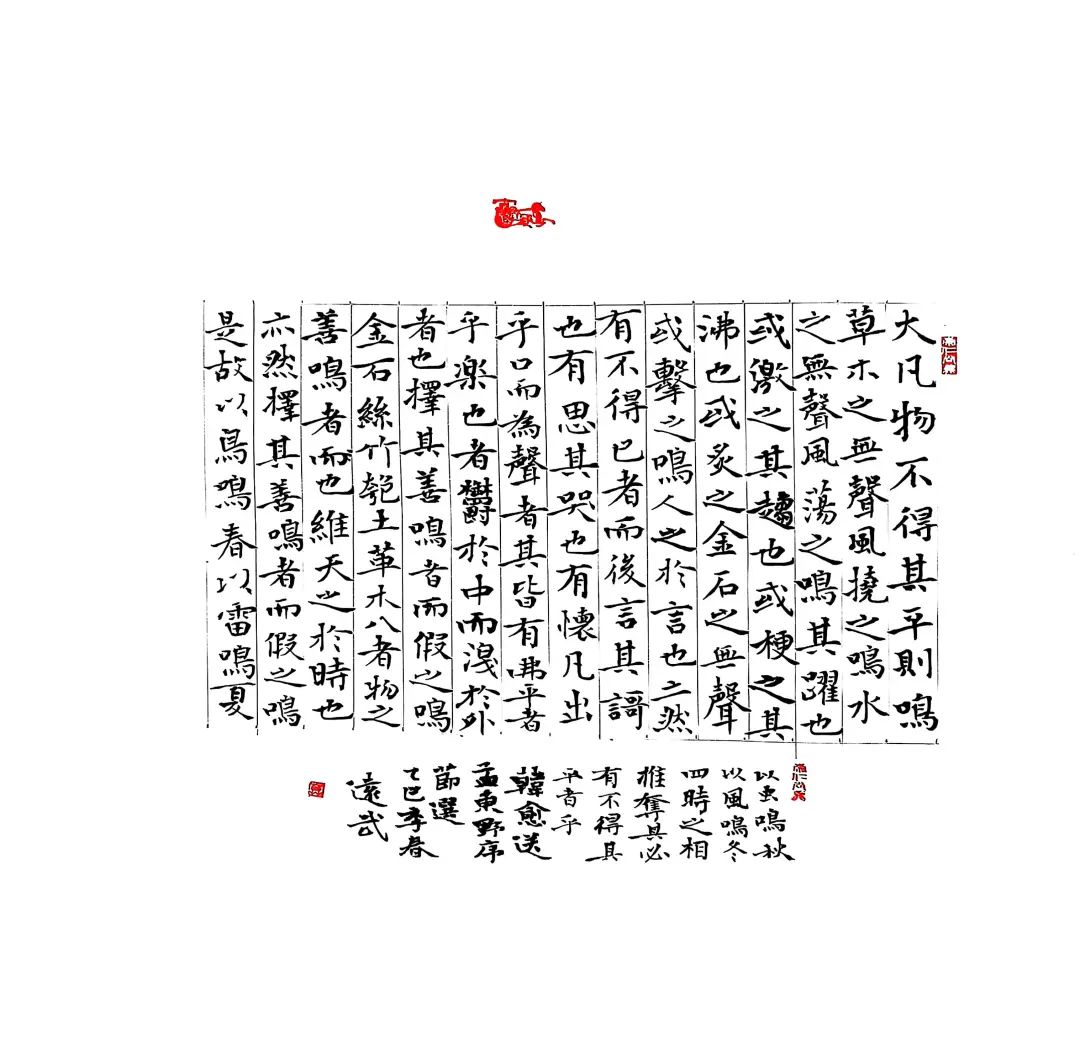 大凡物不得其平則鳴
草木之無聲風撓之鳴水
之無聲風蕩之鳴其躍也
或激之其趨也或梗之其
沸也或炙之金石之無聲
或擊之鳴人之於言也亦然
有不得已者而後言其謌
也有思其哭也有懷凡出
乎口而為聲者其皆有弗平者
乎楽也者鬱於中而洩於外
者也擇其善鳴者而假之鳴
金石絲竹匏土革木八者物之
善鳴者而也維天之於時也
亦然擇其善鳴者而假之鳴
是故以鳥鳴春以雷鳴夏
以虫鳴秋
以風鳴冬
四時之相
推奪其必
有不得其
平者乎
韓愈送
孟東野序
節選
乙巳季春
遠哉